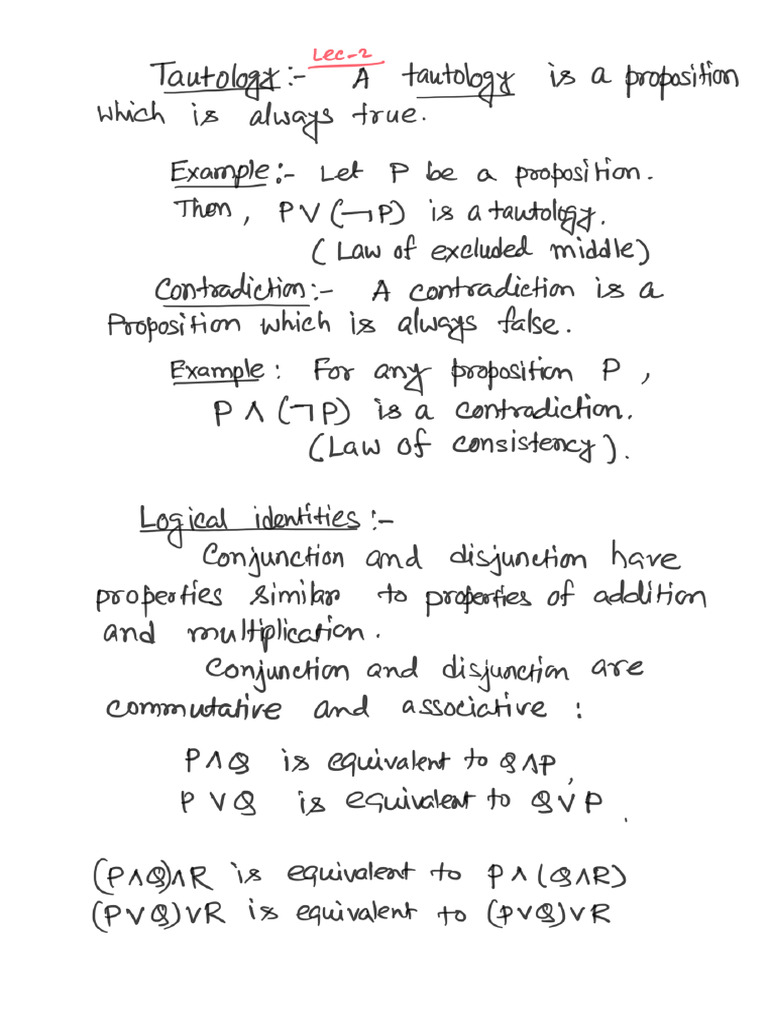 Lec-2
Tautology:- A tautology is a proposition
which is always true.
Example:- Let P be a proposition.
Then, P∨(¬P) is a tautology.
(Law of excluded middle)
Contradiction:- A contradiction is a
Proposition which is always false.
Example: For any proposition P,
P∧(¬P) is a contradiction.
(Law of consistency).
Logical identities:-
Conjunction and disjunction have
properties similar to properties of addition
and multiplication.
Conjunction and disjunction are
commutative and associative:
P∧Q is equivalent to Q∧P,
P∨Q is equivalent to Q∨P.
(P∧Q)∧R is equivalent to P∧(Q∧R)
(P∨Q)∨R is equivalent to (P∨Q)∨R